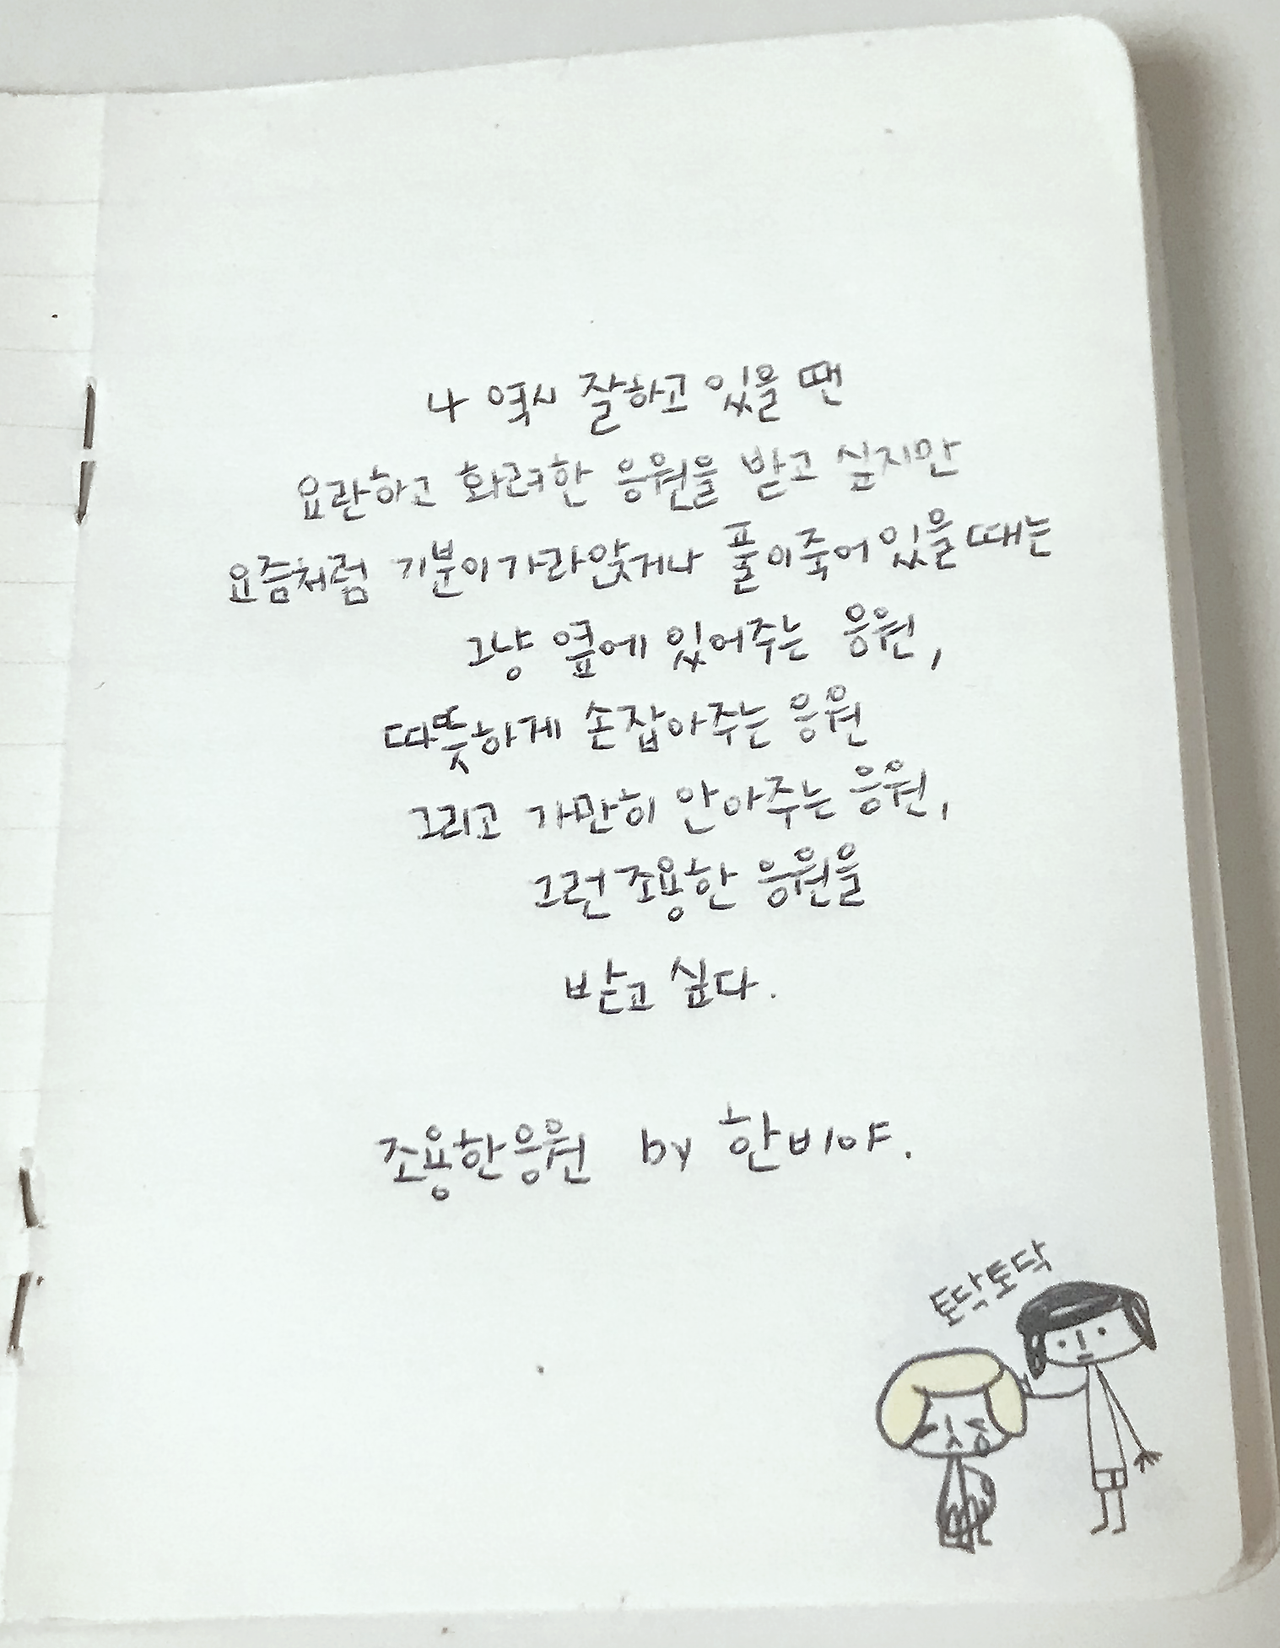 나 역시 잘하고 있을 땐
요란하고 화려한 응원을 받고 싶지만
요즘처럼 기분이 가라앉거나 풀이죽어 있을 때는
그냥 옆에 있어주는 응원,
따뜻하게 손잡아주는 응원
그리고 가만히 안아주는 응원,
그런 조용한 응원을
받고 싶다.
조용한 응원 by 한비야.
토닥토닥